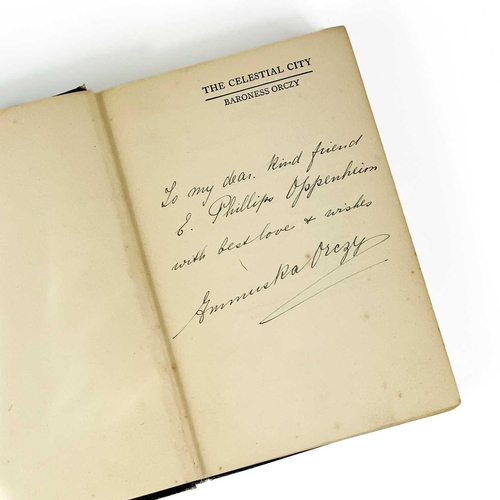 THE CELESTIAL CITY
BARONESS ORCZY
To my dear. kind friend
E. Phillips Oppenheim
with best love & wishes
Emmuska Orczy